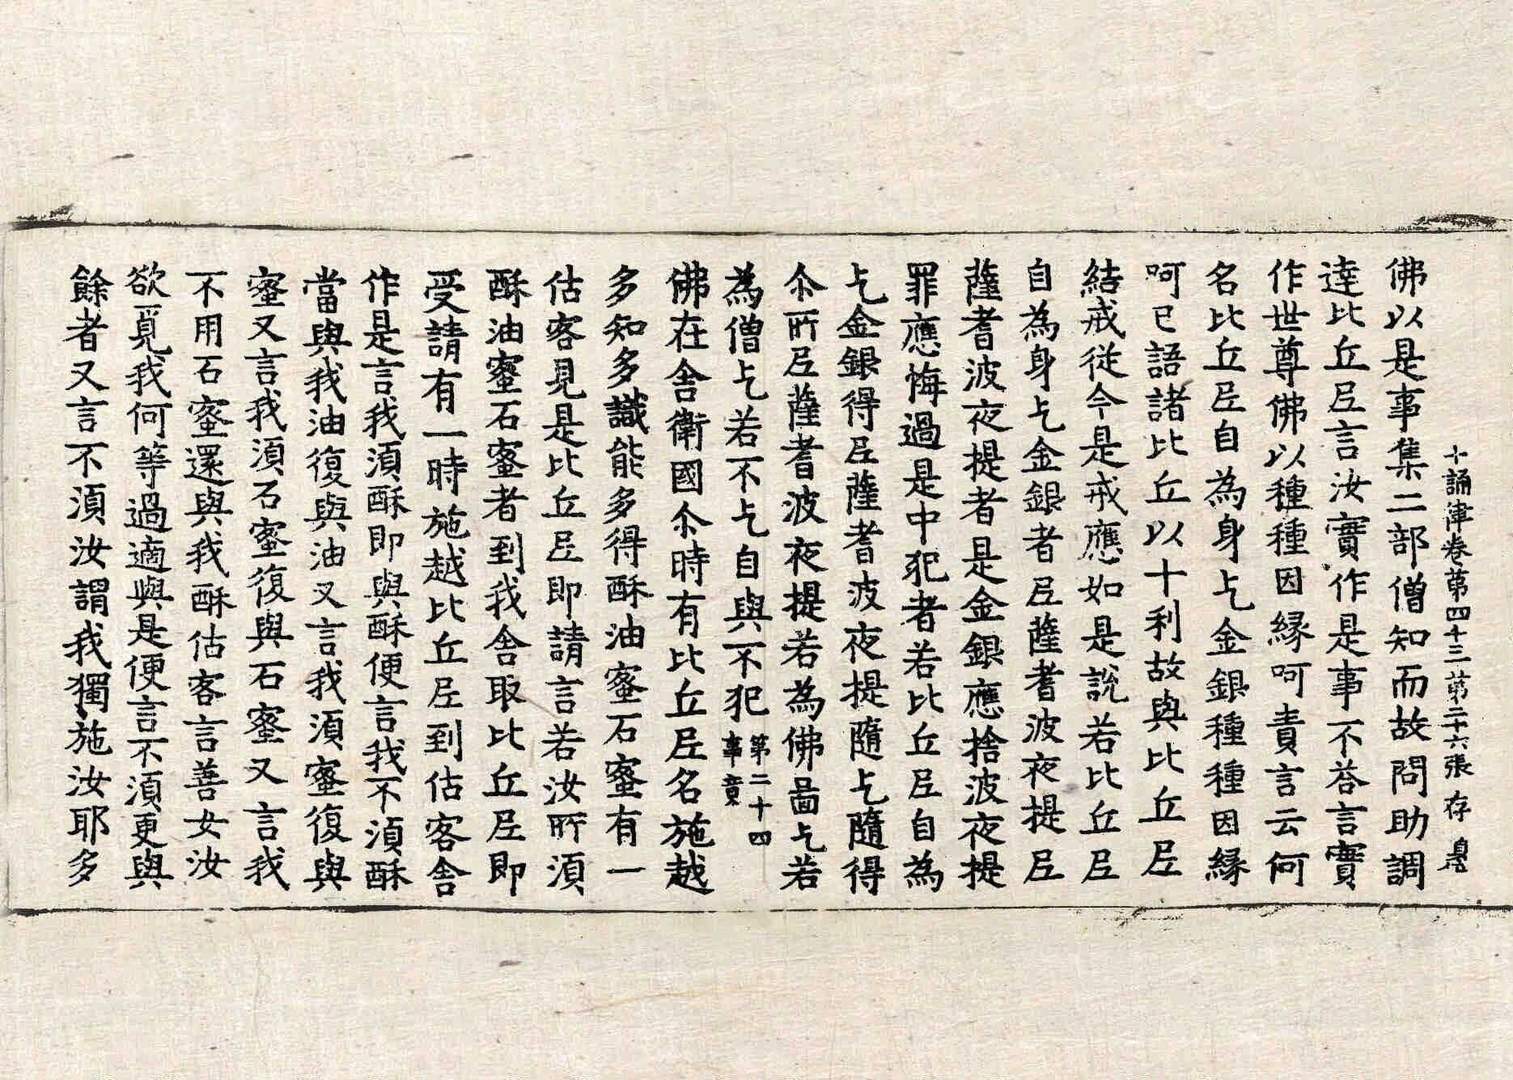 十誦律卷第四十三 第二十六張 存
佛以是事集二部僧知而故問助調
達比丘尼言汝實作是事不荅言實
作世尊佛以種種因緣呵責言云何
名比丘尼自為身乞金銀種種因緣
呵已語諸比丘以十利故與比丘尼
結戒從今是戒應如是說若比丘尼
自為身乞金銀者尼薩耆波夜提尼
薩耆波夜提者是金銀應捨波夜提
罪應悔過是中犯者若比丘尼自為
乞金銀得尼薩耆波夜提隨乞隨得
尒所尼薩耆波夜提若為佛啚乞若
為僧乞若不乞自與不犯 第二十四事竟
佛在舍衛國尒時有比丘尼名施越
多知多識能多得酥油蜜石蜜有一
估客見是比丘尼即請言若汝所須
酥油蜜石蜜者到我舍取比丘尼即
受請有一時施越比丘尼到估客舍
作是言我須酥即與酥便言我不須酥
當與我油復與油又言我須蜜復與
蜜又言我須石蜜復與石蜜又言我
不用石蜜還與我酥估客言善女汝
欲覓我何等過適與是便言不須更與
餘者又言不須汝謂我獨施汝耶多